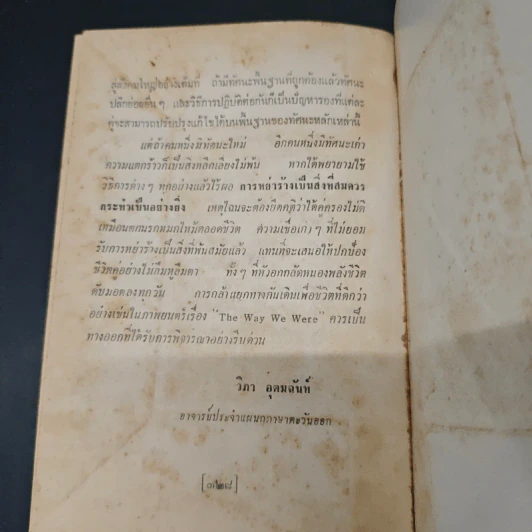 สู่สังคมใหญ่อย่างเต็มที่ ถ้ามีทัศนะพื้นฐานที่ถูกต้องแล้วทัศนะ
ปลีกย่อยอื่นๆ และวิธีการปฏิบัติต่อกันก็เป็นปัญหารองที่แต่ละ
คู่จะสามารถปรับปรุงแก้ไขได้บนพื้นฐานของทัศนะหลักเหล่านี้
แต่ถ้าคนหนึ่งมีทัศนะใหม่ อีกคนหนึ่งมีทัศนะเก่า
ความแตกร้าวก็เป็นสิ่งหลีกเลี่ยงไม่พ้น หากได้พยายามใช้
วิธีการต่างๆ ทุกอย่างแล้วไร้ผล การหย่าร้างเป็นสิ่งที่สมควร
กระทำเป็นอย่างยิ่ง เหตุไฉนจะต้องยึดคติว่าได้คู่ครองไม่ดี
เหมือนตกนรกหมกไหม้ตลอดชีวิต ความเชื่อเก่าๆ ที่ไม่ยอม
รับการหย่าร้างเป็นสิ่งที่พ้นสมัยแล้ว แทนที่จะเสนอให้ปกป้อง
ชีวิตคู่อย่างไม่ลืมหูลืมตา ทั้งๆ ที่หัวอกกลัดหนองพลังชีวิต
ดับมอดลงทุกวัน การกล้าแยกทางกันเดินเพื่อชีวิตที่ดีกว่า
อย่างเช่นในภาพยนตร์เรื่อง "The Way We Were" ควรเป็น
ทางออกที่ได้รับการพิจารณาอย่างรีบด่วน
วิภา อุตมฉันท์
อาจารย์ประจำแผนกภาษาตะวันออก